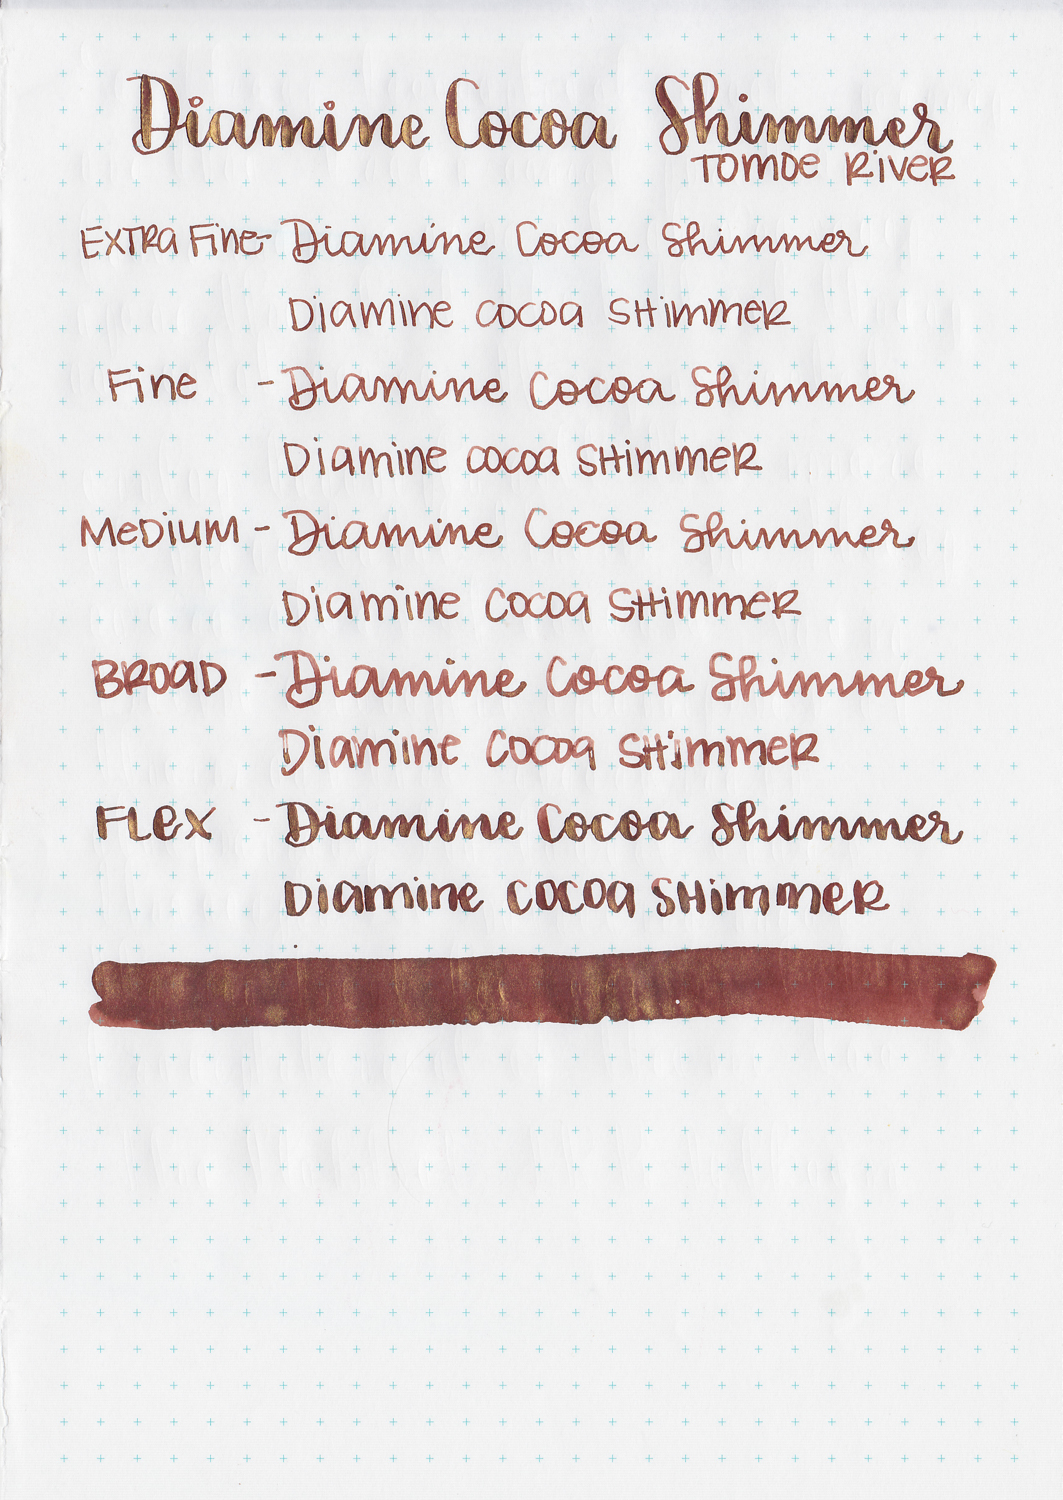 Diamine Cocoa Shimmer
Tomoe River
Extra Fine - Diamine Cocoa Shimmer
Diamine Cocoa Shimmer
Fine - Diamine Cocoa Shimmer
Diamine Cocoa Shimmer
Medium - Diamine Cocoa Shimmer
Diamine Cocoa Shimmer
Broad - Diamine Cocoa Shimmer
Diamine Cocoa Shimmer
Flex - Diamine Cocoa Shimmer
Diamine Cocoa Shimmer